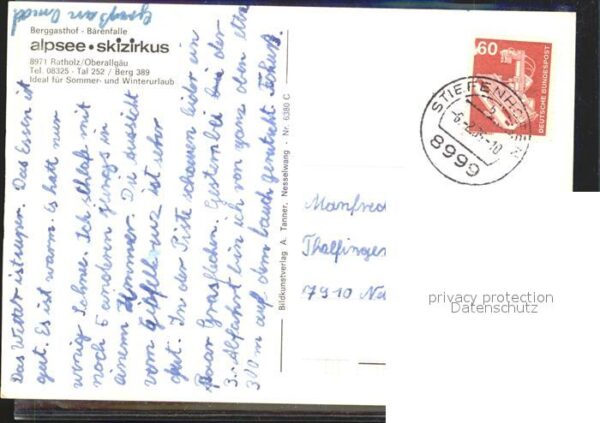 Gruß an Omi
Berggasthof - Bärenfalle
alpsee • skizirkus
8971 Ratholz/Oberallgäu
Tel. 08325 - Tal 252 / Berg 389
Ideal für Sommer- und Winterurlaub
Das Wetter ist super. Das Essen ist
gut. Es ist warm. Es hat nur
wenig Schnee. Ich schlafe mit
noch 5 anderen Jungs in
einem Zimmer. Die Aussicht
vom Gipfelkreuz ist sehr
gut. In der Piste schauen leider ein
paar Grasflecken. Gestern bei der
3. Abfahrt bin ich von ganz oben etwa
300 m auf dem Bauch gerutscht
Bildkunstverlag A. Tanner, Nesselwang - Nr. 6380 C
60
DEUTSCHE BUNDESPOST
STIEFENHOFEN
8999
Manfred
Thalfingen
7910 Ne
privacy protection
Datenschutz